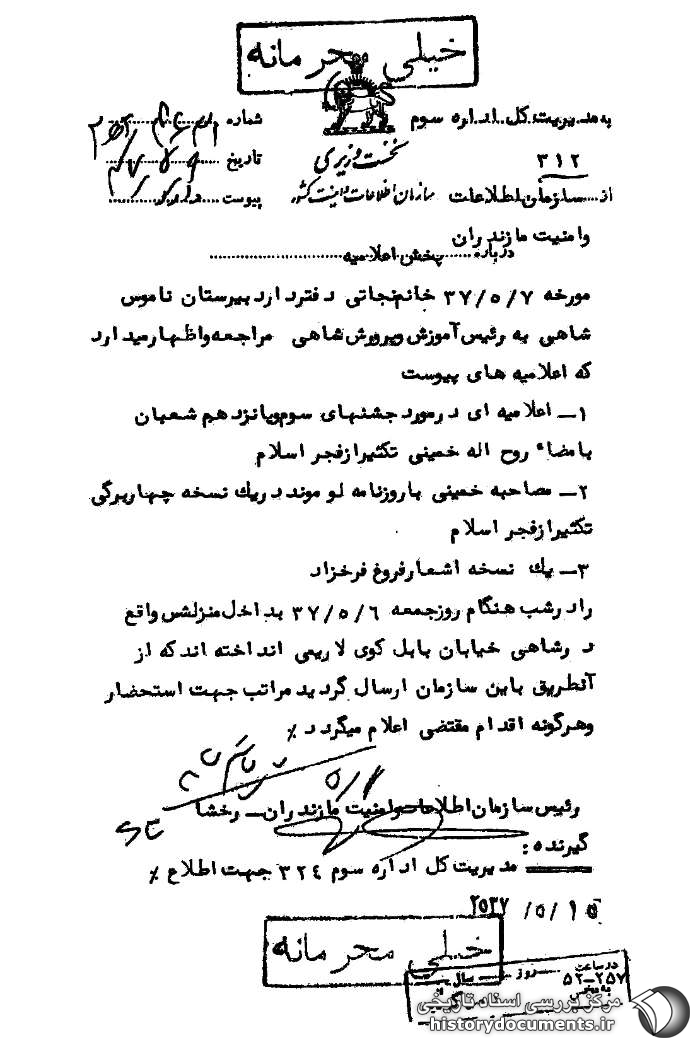 خیلی محرمانه
به مدیریت کل اداره سوم
۳۱۲
شماره
نخست وزیری
تاریخ
از سازمان اطلاعات
سازمان اطلاعات و امنیت کشور
پیوست دارد
وامنیت مازندران
درباره پخش اعلامیه
مورخه ۳۷/۵/۷ خانم نجاتی دفتردار دبیرستان ناموس
شاهی به رئیس آموزش وپرورش شاهی مراجعه واظهار میدارد
که اعلامیه های پیوست
۱ــ اعلامیه ای در مورد جشنهای سوم وپانزدهم شعبان
بامضاء روح اله خمینی تکثیر از فجر اسلام
۲ــ مصاحبه خمینی باروزنامه لوموند دریک نسخه چهاربرگی
تکثیر از فجر اسلام
۳ــ یک نسخه اشعار فروغ فرخزاد
رادر شب هنگام روز جمعه ۳۷/۵/۶ بداخل منزلش واقع
در شاهی خیابان بابل کوی لاریمی انداخته اند که از
آنطریق باین سازمان ارسال گردید مراتب جهت استحضار
وهرگونه اقدام مقتضی اعلام میگردد ٪
رئیس سازمان اطلاعات وامنیت مازندران ــ رخشا
گیرنده :
مدیریت کل اداره سوم ۳۲۴ جهت اطلاع ٪
۲۵۳۷ /۵/ ۱۵
خیلی محرمانه
در ساعت
روز
سال
۵۲-۲۵۷
مرکز بررسی اسناد تاریخی
historydocuments.ir